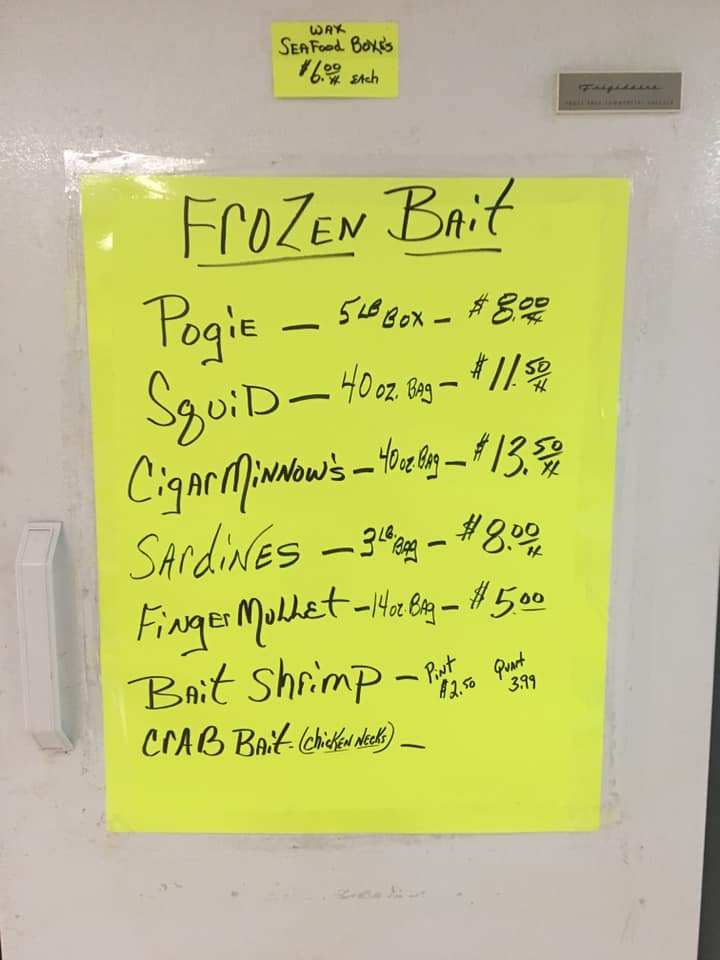 WAX
SEAFOOD BOXE'S
$6.00 EACH
Frigidaire
FROZEN BAit
PogiE — 5 LB BOX — $8.00
SquiD — 40 oz. BAg — $11.50
CigAr MiNNow's — 40 oz. BAg — $13.50
SArdiNES — 3 LB BAg — $8.00
FiNgEr MuLLEt — 14 oz. BAg — $5.00
BAit Shrimp — PiNt $2.50 QuArt 3.99
CrAB BAit - (ChiCKEN NECKS) —